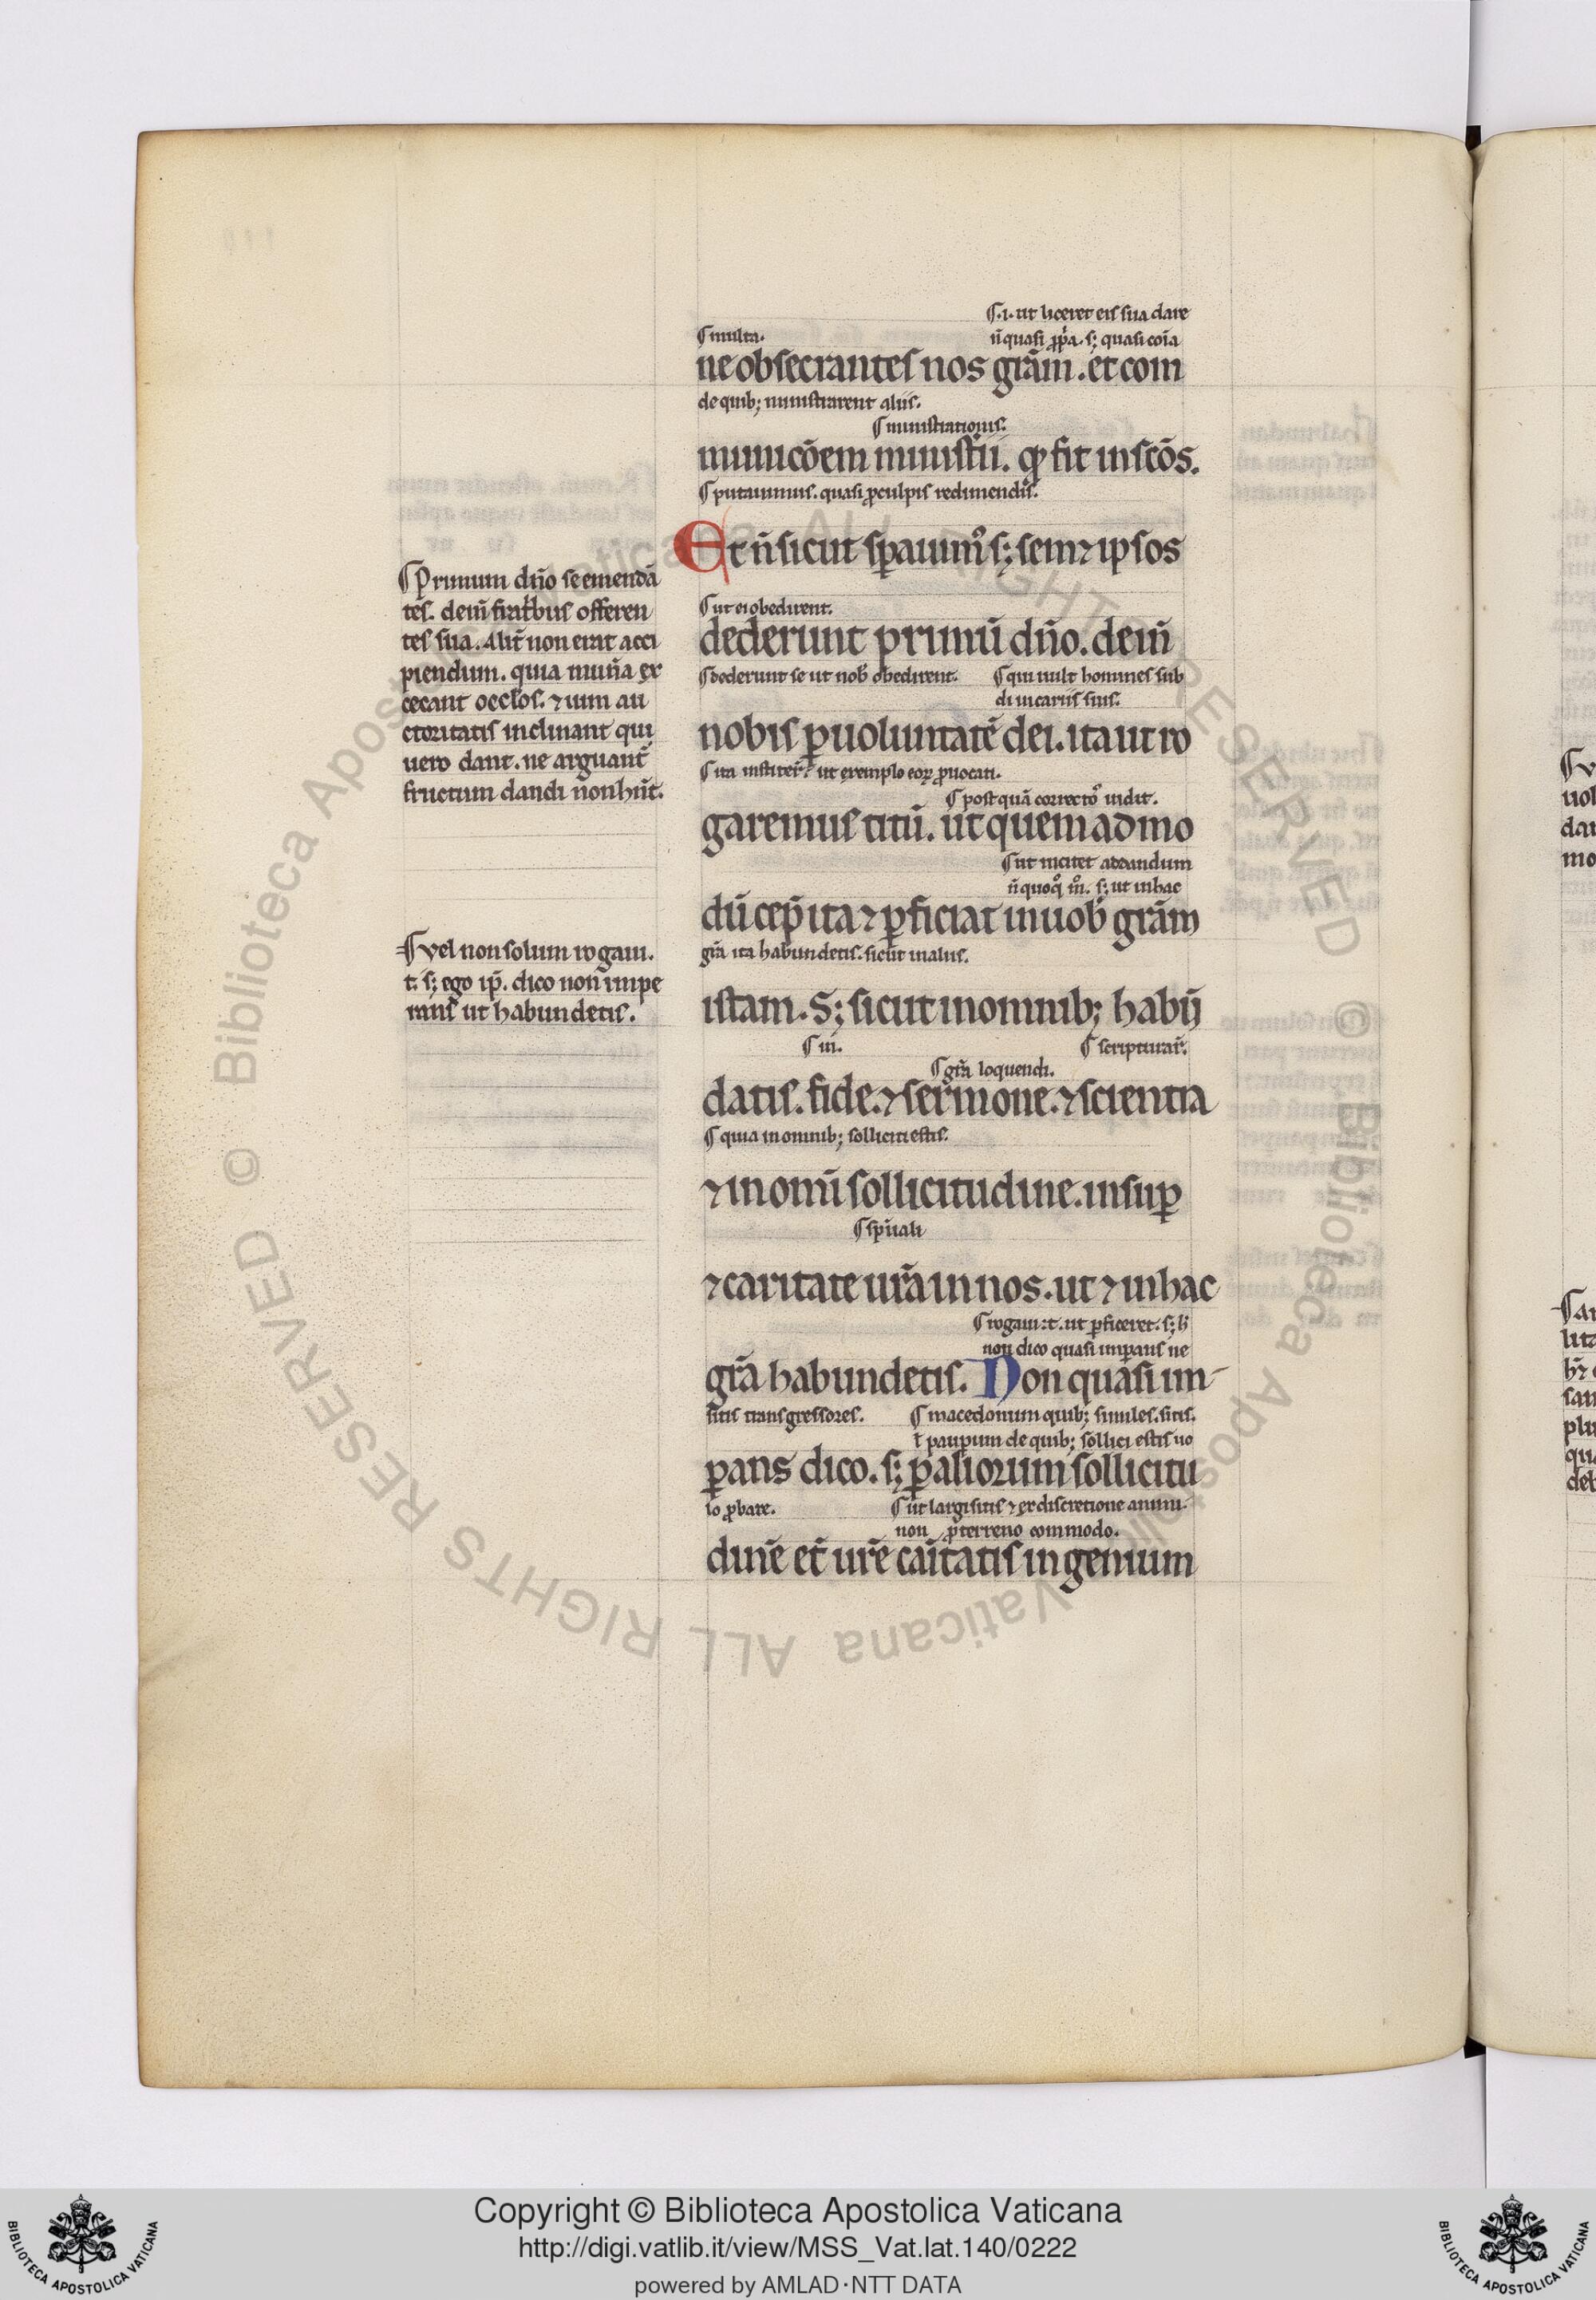 ¶.i. ut liceret eis sua dare
¶ multa.
n̄ quasi ꝓp̱a. s; quasi cōia
ne obsecrantes nos grām. et com
de quib; ministrarent aliis.
¶ ministrationis.
municōem ministii. qđ fit in scōs.
¶ putauimus. quasi ꝓ culpis redimendis.
Et n̄ sicut sꝑauim᷒ s; semetipsos
¶ ut ei obedirent.
dederunt primū dn̄o. dein̄
¶ dederunt se ut nob̄ obedirent. ¶ qui uult homines sub
di uicariis suis.
nobis ꝑ uoluntatē dei. ita ut ro
¶ ita institer̄. ut exemplo eoꝝ ꝓuocati.
¶ postquā correcto᷒ uidit.
garemus titū. ut quemadmo
¶ ut incitet ad dandum
n̄ quoq᷒ m̊. s; ut in hac
dū cep̄ ita ⁊ ꝑficiat in uob̄ grām
grā ita habundetis. sicut in aliis.
istam. S; sicut in omnib; habū
¶ in. ¶ scripturar̄.
¶ grā loquendi.
datis. fide. ⁊ sermone. ⁊ scientia
¶ quia in omnib; solliciti estis.
⁊ in omī sollicitudine. insuꝑ
¶ sp̄uali
⁊ caritate urā in nos. ut ⁊ in hac
¶ rogaui .t. ut ꝑficeret. s; h̄
non dico quasi imꝑans ne
grā habundetis. Non quasi im-
sitis transgressores. ¶ macedonum quib; similes. sitis.
ł pauꝑum de quib; sollici estis uo
ꝑans dico. s; ꝑ aliorum sollicitu
lo ꝓbare. ¶ ut largi sitis ⁊ ex discretione animi.
non ꝓ terreno commodo.
dinē et̄ urē cāitatis ingenium
¶ Primum dn̄o se emendā
tes. dein̄ fratribus offeren
tes sua. Alit̄ non erat acci
piendum. quia mun̄a ex
cecant occłos. ⁊ uim au
ctoritatis inclinant qui
uero dant. ne arguant̄
fructum dandi non hn̄t.
¶ Vel non solum rogaui.
t. s; ego ip̄. dico non impe
rans ut habundetis.
Copyright © Biblioteca Apostolica Vaticana
http://digi.vatlib.it/view/MSS_Vat.lat.140/0222
powered by AMLAD·NTT DATA
BIBLIOTECA APOSTOLICA VATICANA
BIBLIOTECA APOSTOLICA VATICANA
© Biblioteca Apostolica Vaticana ALL RIGHTS RESERVED
© Biblioteca Apostolica Vaticana ALL RIGHTS RESERVED